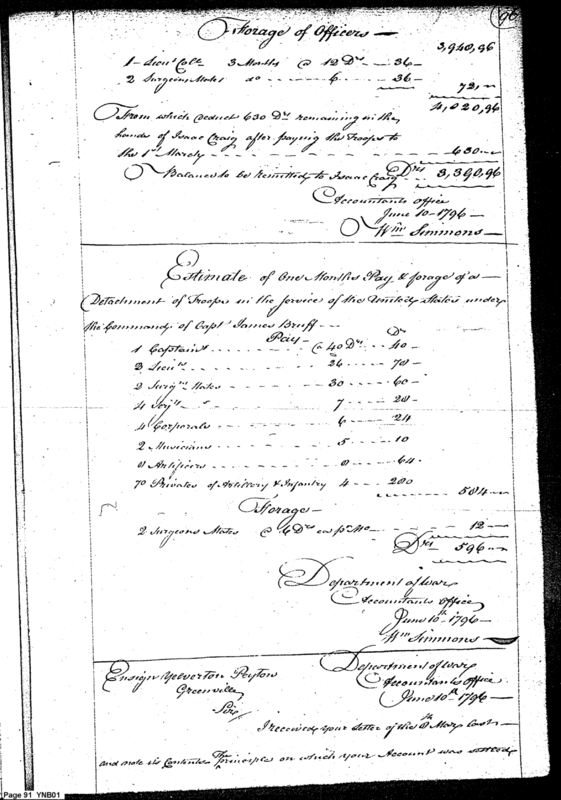 96
Forage of Officers —
3,948,96
1 Lieut Colo 3 Months @ 12 Drs -- 36 -
2 Surgeons Mates do - - - 6 - - - 36 -
72,
4,020,96
From which deduct 630 Drs remaining in the
hands of Isaac Craig after paying the Troops to
the 1st March - - - - - - 630
Balance to be remitted to Isaac Craig - - Drs 3,390,96
Accountants office
June 10 - 1796 —
Wm Simmons —
Estimate of One Months Pay & forage of a —
Detachment of Troops in the service of the United States under
the Command of Capt James Bruff - - -
Pay — Drs
1 Captain - - - - - @ 40 Drs - - 40 -
3 Lieuts - - - - - 26 - - - 78 -
2 Surgns Mates - - - - - 30 - - - 60 -
4 Serjts - - - - - 7 - - - 28 -
4 Corporals - - - - - 6 - - - 24
2 Musicians - - - - - 5 - - - 10
8 Artificers - - - - - 8 - - - 64 -
70 Privates of Artillery & Infantry 4 - - - 280
584
Forage —
2 Surgeons Mates @ 6 Drs ea pr Mo - - - 12
Drs 596
Department of War
Accountants Office
June 10th 1796 —
Wm Simmons —
Ensign Yelverton Peyton
Greenville
Department of War
Accountants Office
June 10th 1796 —
Sir,
I received your Letter of the 8th May last
and note its Contents The principles on which your Account was settled
Page 91 YNB01